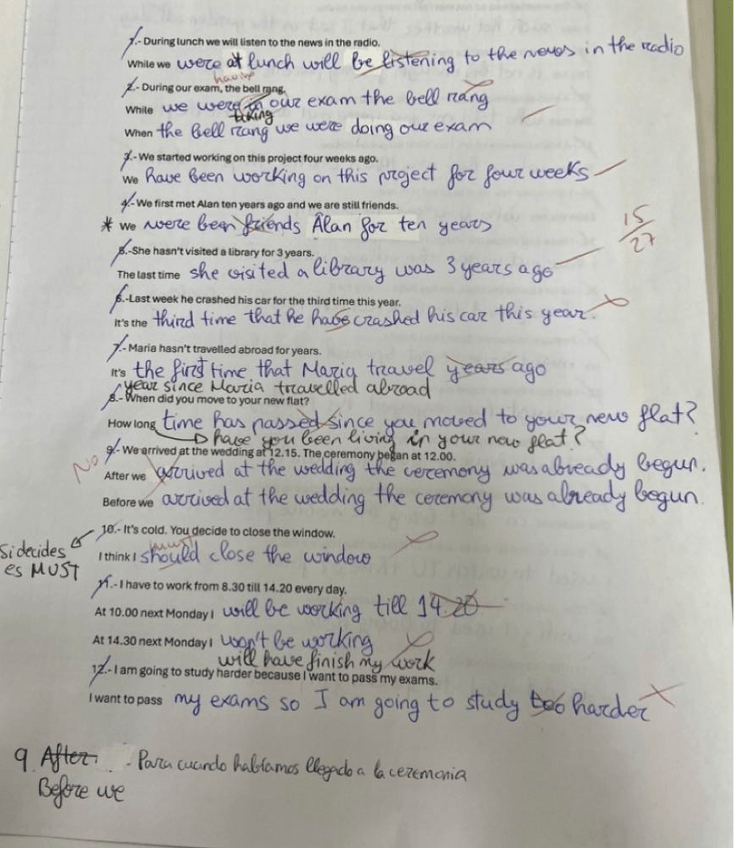 1.- During lunch we will listen to the news in the radio.
While we were at lunch will be listening to the news in the radio
having
2.- During our exam, the bell rang.
While we were in our exam the bell rang
taking
When the bell rang we were doing our exam
3.- We started working on this project four weeks ago.
We have been working on this project for four weeks
4.- We first met Alan ten years ago and we are still friends.
* We were been friends Alan for ten years
15/27
5.-She hasn't visited a library for 3 years.
The last time she visited a library was 3 years ago
6.-Last week he crashed his car for the third time this year.
It's the third time that he have crashed his car this year.
7.- Maria hasn't travelled abroad for years.
It's the first time that Maria travel years ago
year since Maria travelled abroad
8.- When did you move to your new flat?
How long time has passed since you moved to your new flat?
have you been living in your new flat?
9.- We arrived at the wedding at 12.15. The ceremony began at 12.00.
No
After we arrived at the wedding the ceremony was already begun.
Before we arrived at the wedding the ceremony was already begun.
10.- It's cold. You decide to close the window.
must
I think I should close the window
Si decides
es MUST
11.- I have to work from 8.30 till 14.20 every day.
At 10.00 next Monday I will be working till 14.20
At 14.30 next Monday I won't be working
will have finish my work
12.- I am going to study harder because I want to pass my exams.
I want to pass my exams so I am going to study too harder
9. After - Para cuando habíamos llegado a la ceremonia
Before we